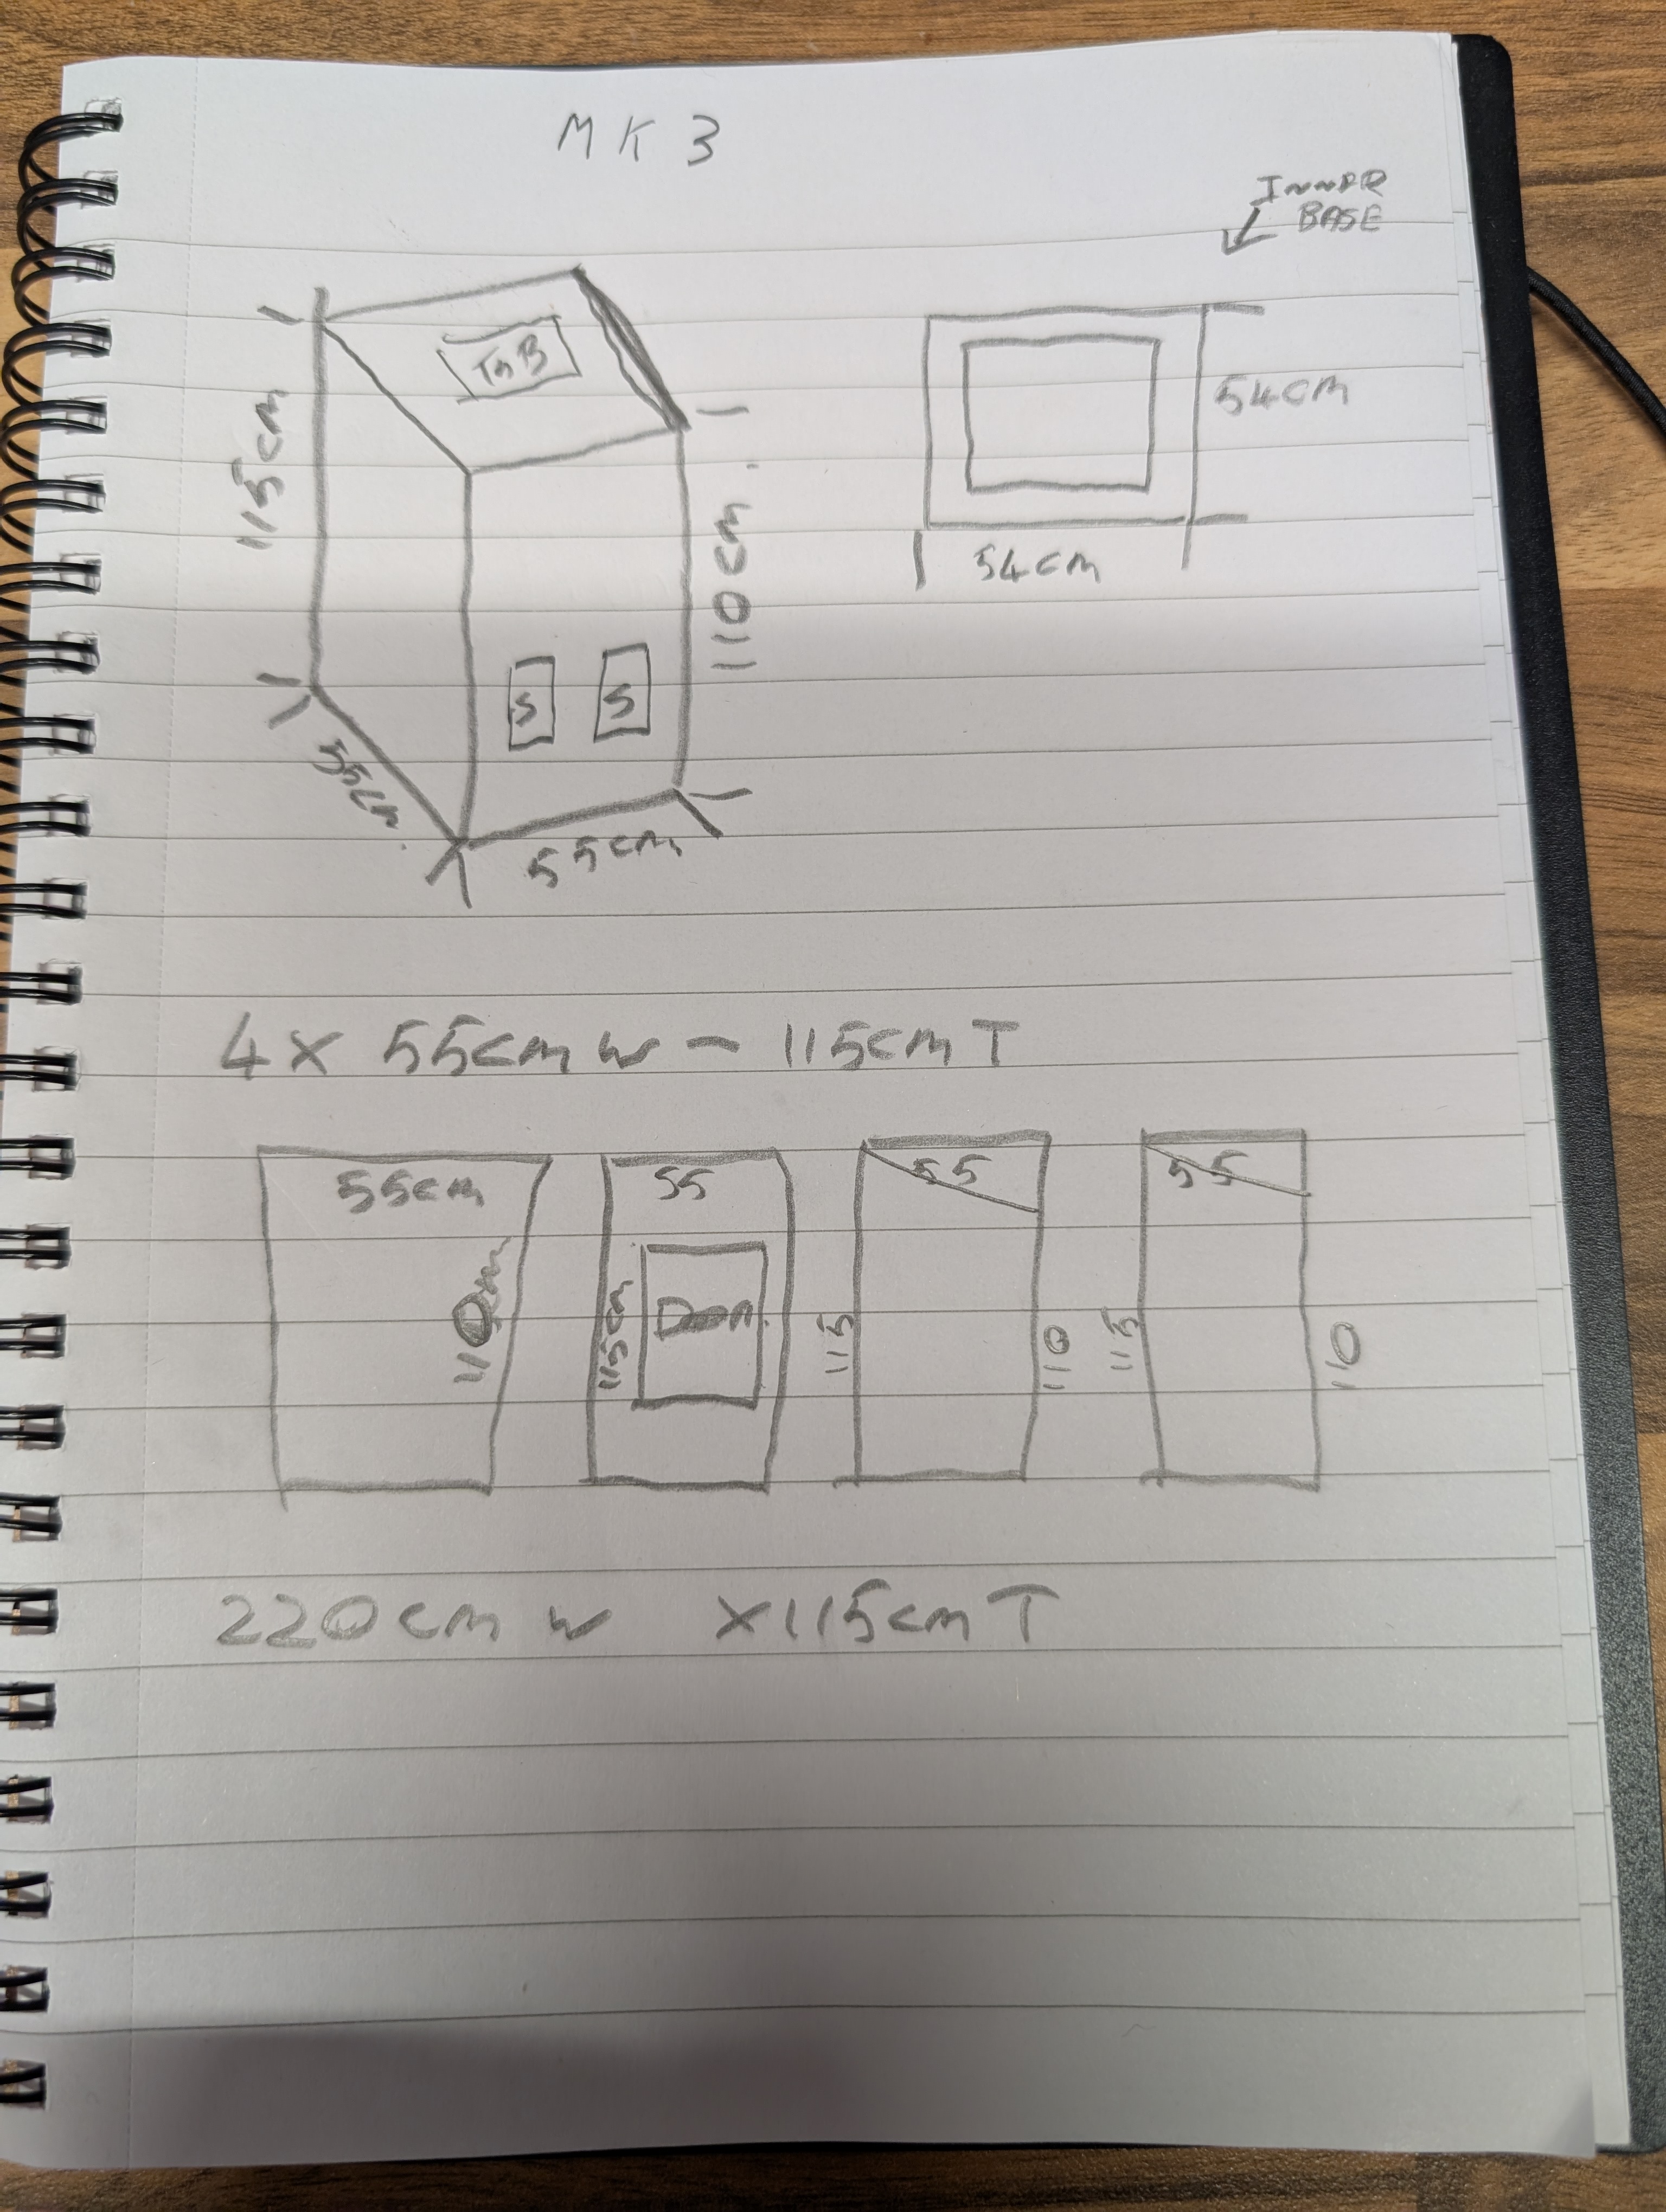 MK3
INNER
BASE
TAB
115cm
54cm
54cm
110cm
S S
55cm
55cm
4x 55cm w - 115cm T
55cm
110cm
55
115cm
Door
55
115
110
55
115
110
220cm w x115cm T